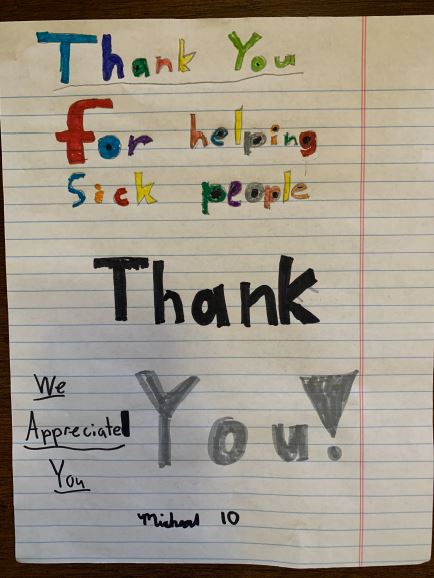 Thank You
For helping
Sick people
Thank
You!
We
Appreciate
You
Michael 10